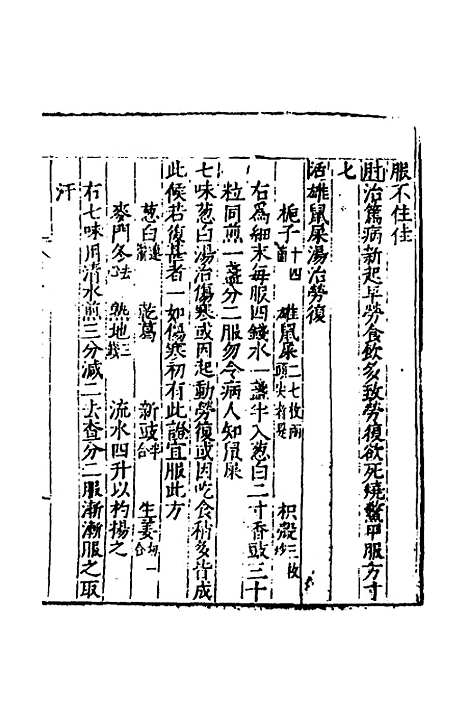 服不住佳
肘治篤病新起早勞食飲多致勞復欲死燒鱉甲服方寸
七
活雄鼠屎湯治勞復
梔子十四箇 雄鼠屎二七枚兩頭尖者是 枳殼三枚炒
右爲細末每服四錢水一盞半入葱白二寸香豉三十
粒同煎一盞分二服勿令病人知鼠屎
七味葱白湯治傷寒或因起動勞復或因吃食稍多皆成
此候若復甚者一如傷寒初有此證宜服此方
葱白連鬚 乾葛 新豉半合 生姜切一合
麥門冬去 熟地三錢 流水四升以杓揚之
右七味用清水煎三分減二去查分二服漸漸服之取
汗